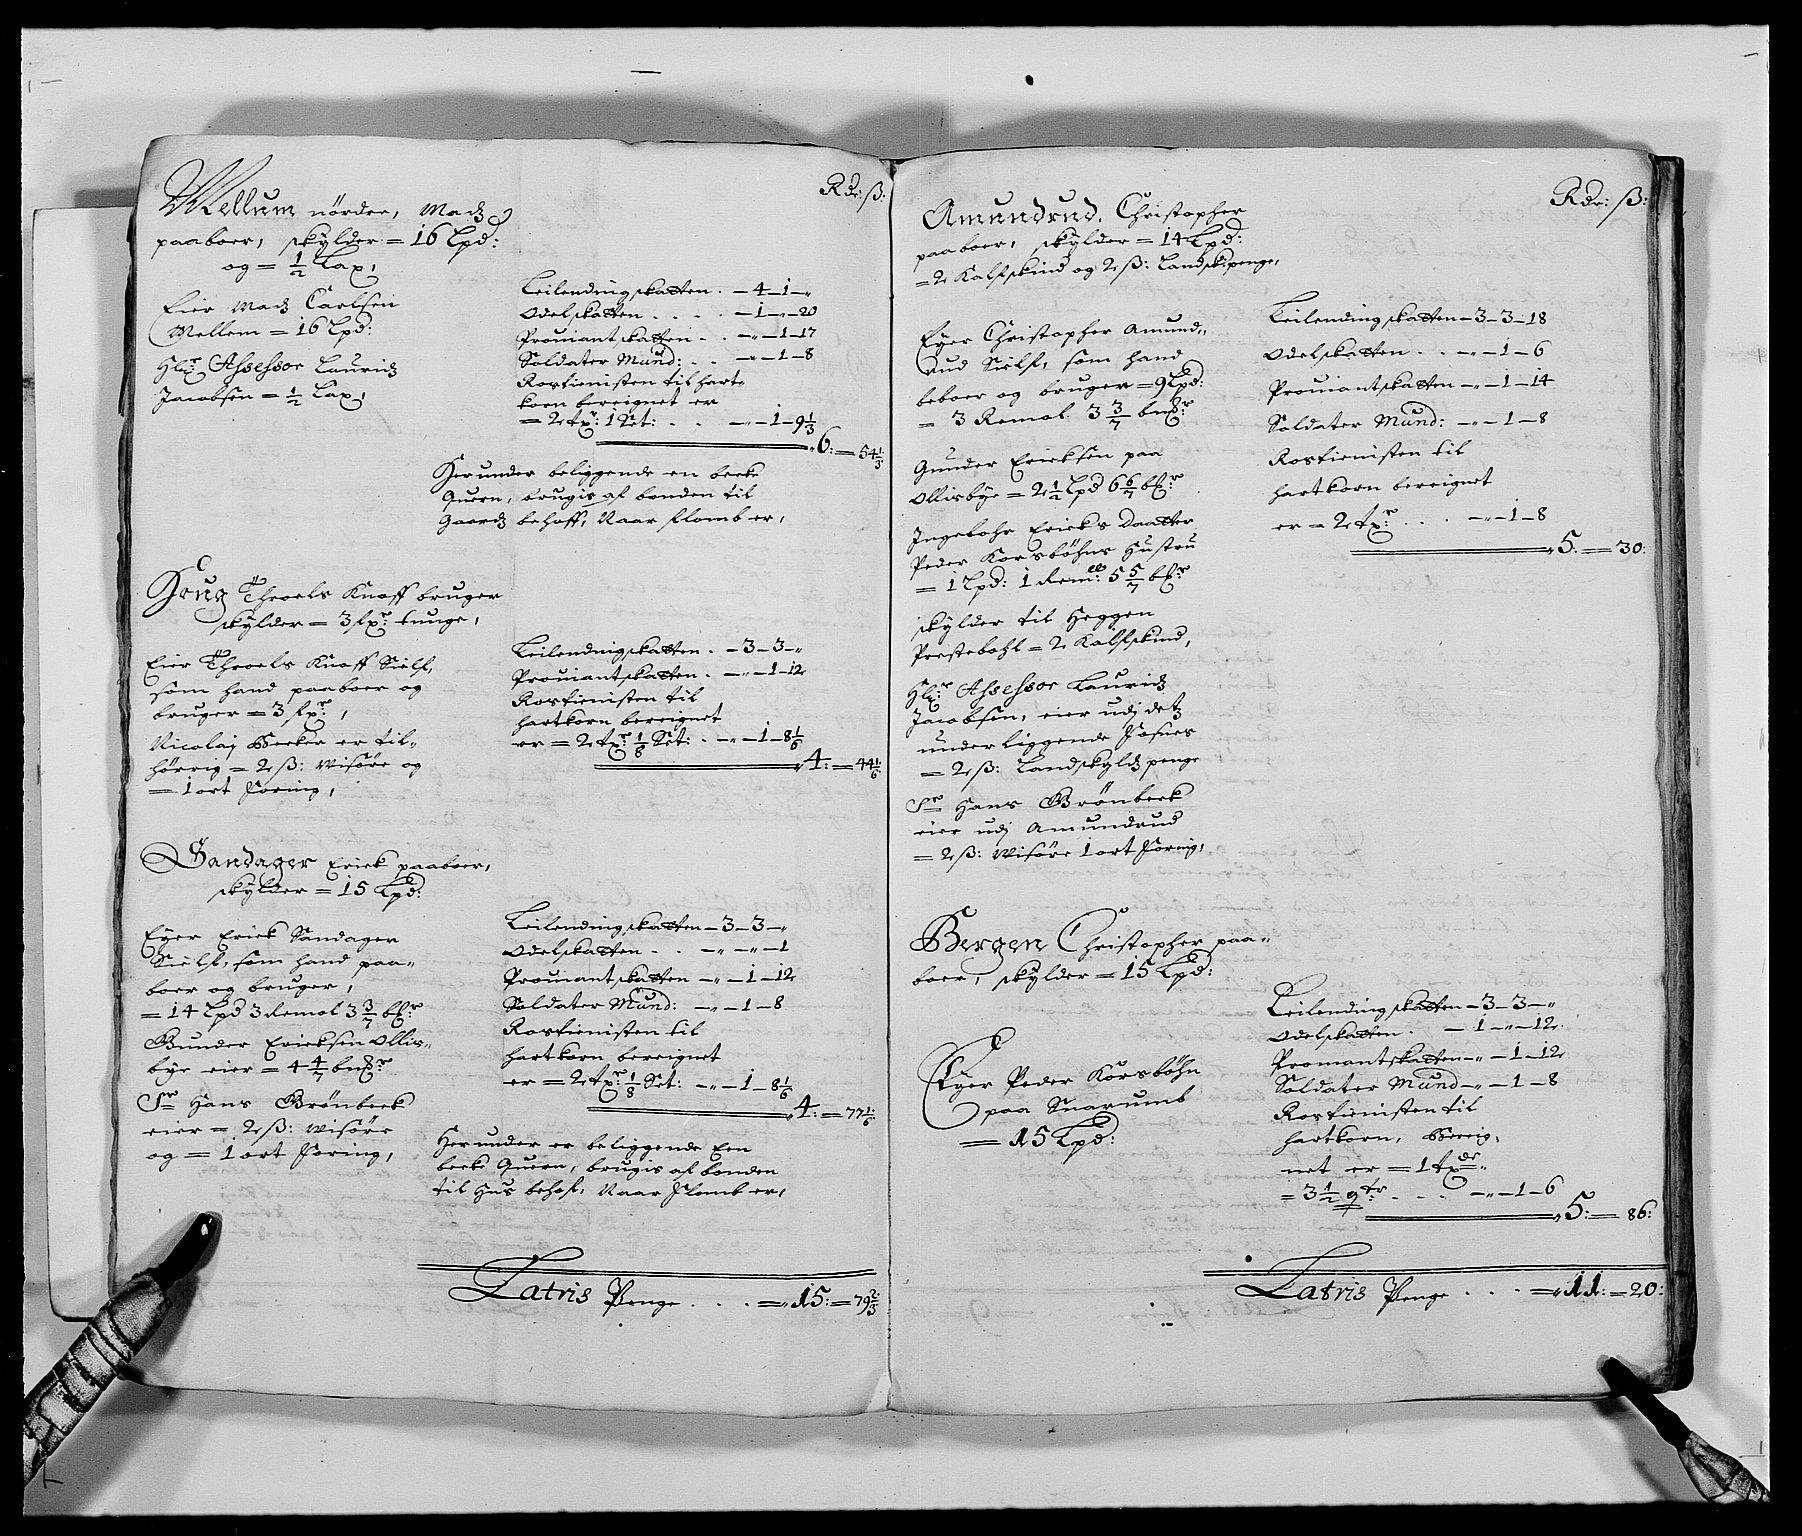 Rdr: ß:
Mellum nördre, Madz
paaboer, skylder = 16 Lpd:
og = 1/2 Lax,
Eier Madz Carlsen
Mellem = 16 Lpd:
Hr: Assessor Lauridz
Jacobsen = 1/2 Lax,
Leilendingskatten . – 4 – 1 – „
Odelskatten . . . . – 1 – „ – 20
Prouiantskatten . . – „ – 1 – 17
Soldater Mund: . . – „ – 1 – 8
Rostienisten til hart-
korn bereignet er
= 2 txr: 1 Set: . . – „ – 1 – 9 1/3
6: = 54 1/3
Herunder beliggende en beche
Quern, brugis af bonden til
Gaardz behoff, Naar flomb er,
Krug Troels Knoff bruger
skylder = 3 fxr: tunge,
Eier Troels Knoff Sielf,
som hand paaboer og
bruger = 3 fxr:,
Nicolaj Becker er til-
hörrig = 2 ß: Wisöre og
= 1 ort foring,
Leilendingskatten . – 3 – 3 – „
Prouiantskatten . – „ – 1 – 12
Rostienisten til
hartkorn bereignet
er = 2 txr: 1/8 Set: . – „ – 1 – 8 1/6
4: = 44 1/6
Sandager Erick paaboer,
skylder = 15 Lpd:
Eger Erick Sandager
Sielf, som hand paa-
boer og bruger,
= 14 Lpd 3 Remol 3 3/7 bxr
Gunder Ericksen Ollis-
bye eier = 4 4/7 bmxr
Sr Hans Grönbeck
eier = 2 ß: Wisöre
og = 1 ort foring,
Leilendingskatten – 3 – 3 – „
Odelskatten . . – „ – „ – 1
Prouiantskatten – „ – 1 – 12
Soldater Mund: – „ – 1 – 8
Rostienisten til
hartkorn bereignet
er = 2 txr: 1/8 Set: – „ – 1 – 8 1/6
4: = 77 1/6
Herunder er beliggende Een
becke Quern, brugis af bonden
til Hus behof, Naar flomb er,
Latris Penge . . . = 15: = 79 2/3
Rdr: ß:
Amundrud, Christopher
paaboer, skylder = 14 Lpd:
= 2 Kalfskind og 2 ß: Landskpenge,
Eyer Christopher Amund-
rud Sielf, som hand
beboer og bruger = 9 Lpd:
= 3 Remol 3 3/7 bmxr
Gunder Ericksen paa
Ollisbye = 2 1/2 Lpd 6 6/7 bxr
Ingebohr Ericks Daatter
Peder Korsböhns Hustru
= 1 Lpd: 1 Rem: 5 5/7 bxr
skylder til Heggen
Prestebohl = 2 Kalfskind,
Hr: Assessor Lauridz
Jacobsen, eier udj detz
underliggende Fosnes
= 2 ß: Landskyldz penge
Sr Hans Grönbeck
eier udj Amundrud
= 2 ß: Wisöre 1 ort foring,
Leilendingskatten – 3 – 3 – 18
Odelskatten . . – „ – 1 – 6
Prouiantskatten – „ – 1 – 14
Soldater Mund: – „ – 1 – 8
Rostienisten til
hartkorn bereignet
er = 2 txr: . . . – „ – 1 – 8
5: = 30:
Bergen Christopher paa-
boer, skylder = 15 Lpd:
Eyer Peder Korsböhn
paa Snarumb
= 15 Lpd:
Leilendingskatten – 3 – 3 – „
Odelskatten . – 1 – „ – 12
Prouiantskatten – „ – 1 – 12
Soldater Mund – „ – 1 – 8
Rostienisten til
hartkorn, Bereig-
net er = 1 tx
= 3 1/2 qtr . . . – „ – 1 – 6
5: = 86:
Latris Penge . . . = 11: = 20: